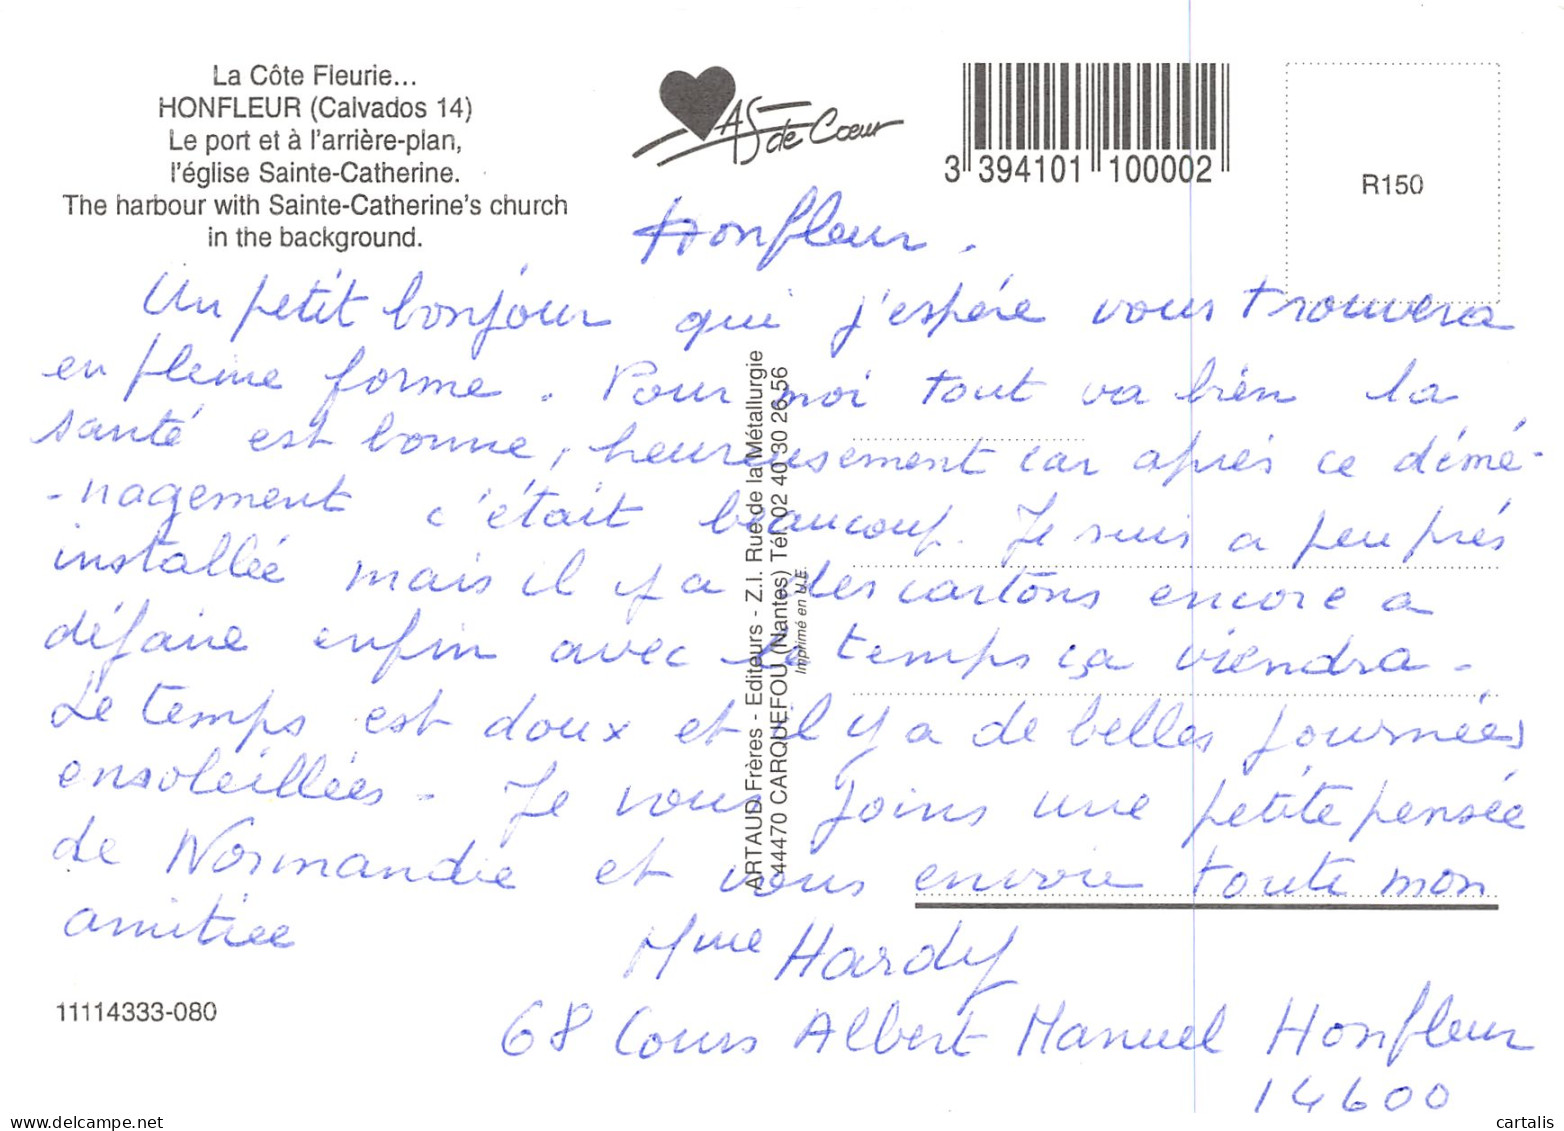 La Côte Fleurie...
HONFLEUR (Calvados 14)
Le port et à l'arrière-plan,
l'église Sainte-Catherine.
The harbour with Sainte-Catherine's church
in the background.
AS de Coeur
3 394101 100002
R150
Honfleur.
Un petit bonjour qui j'espére vous trouvera
en pleine forme. Pour moi tout va bien la
santé est bonne, heureusement car aprés ce démé-
-nagement c'était beaucoup. Je suis a peu prés
installée mais il y a des cartons encore a
défaire enfin avec le temps ça viendra -
Le temps est doux et il y a de belles journées
ensoleillées - Je vous joins une petite pensée
de Normandie et vous envoie toute mon
amitiee
Mme Hardy
68 Cours Albert Manuel Honfleur
14600
ARTAUD Frères - Editeurs - Z.I. Rue de la Métallurgie
44470 CARQUEFOU (Nantes) Tél. 02 40 30 26 56
Imprimé en U.E.
11114333-080
www.delcampe.net
cartalis